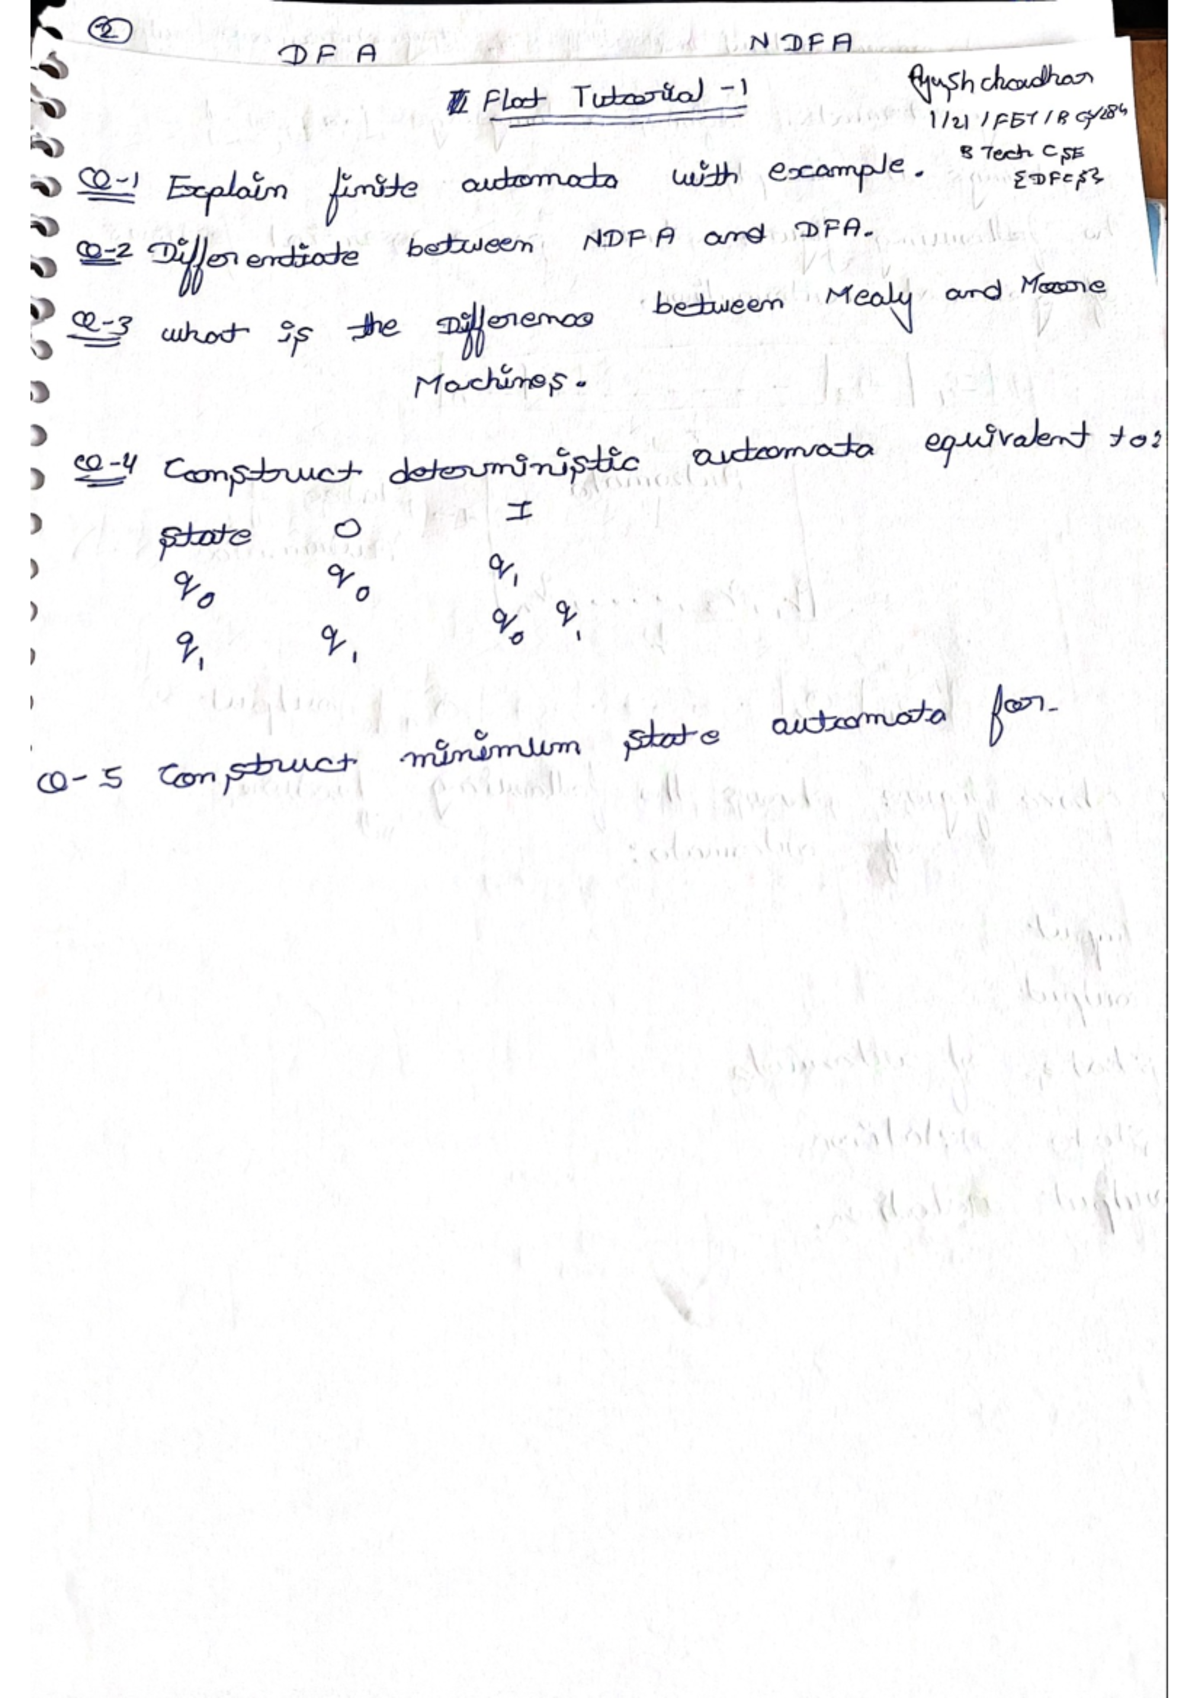 2
DFA NDFA
Flat Tutorial -1
Ayush choudhary
1/21/FET/BCS/284
B Tech CSE
Q-1 Explain finite automata with example.
Q-2 Differentiate between NDFA and DFA.
Q-3 what is the Difference between Mealy and Moore
Machines.
Q-4 Construct deterministic automata equivalent to:
state 0 I
q0 q0 q1
q1 q1 q0 q1
Q-5 Construct minimum state automata for-